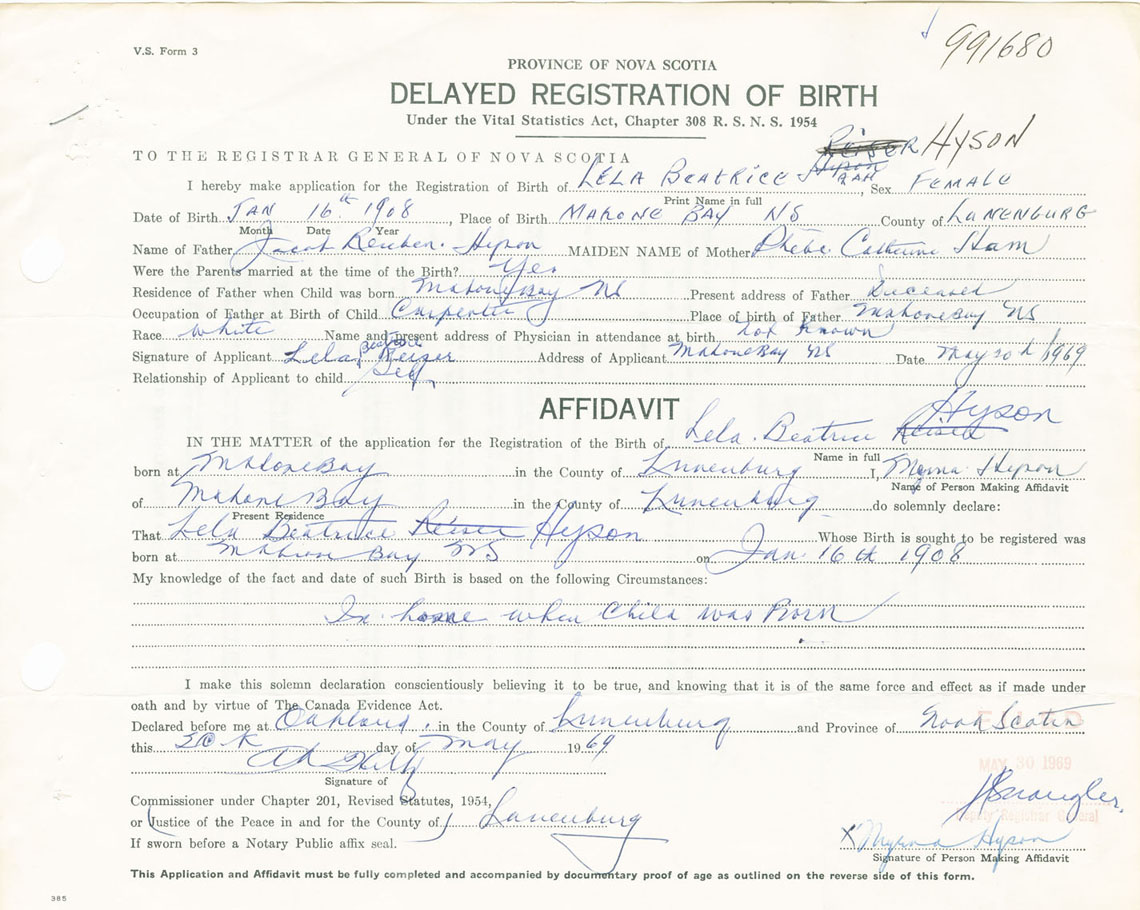 V.S. Form 3
991680
PROVINCE OF NOVA SCOTIA
DELAYED REGISTRATION OF BIRTH
Under the Vital Statistics Act, Chapter 308 R. S. N. S. 1954
REISER HYSON
TO THE REGISTRAR GENERAL OF NOVA SCOTIA
I hereby make application for the Registration of Birth of LELA BEATRICE Hyson, Sex FEMALE
Print Name in full
Date of Birth JAN 16th 1908, Place of Birth MAHONE BAY NS County of LUNENBURG
Month Date Year
Name of Father Jacob Reuben Hyson MAIDEN NAME of Mother Phebe Catherine Ham
Were the Parents married at the time of the Birth? Yes
Residence of Father when Child was born Mahone Bay NS Present address of Father Deceased
Occupation of Father at Birth of Child Carpenter Place of birth of Father Mahone Bay NS
Race White Name and present address of Physician in attendance at birth not known
Signature of Applicant Lela Beatrice Reiser Address of Applicant Mahone Bay NS Date May 20th/1969
Relationship of Applicant to child Self
AFFIDAVIT
IN THE MATTER of the application for the Registration of the Birth of Lela Beatrice Reiser Hyson
Name in full
born at Mahone Bay in the County of Lunenburg I, Myrna Hyson
Name of Person Making Affidavit
of Mahone Bay in the County of Lunenburg do solemnly declare:
Present Residence
That Lela Beatrice Reiser Hyson Whose Birth is sought to be registered was
born at Mahone Bay NS on Jan 16th 1908
My knowledge of the fact and date of such Birth is based on the following Circumstances:
In home when Child was Born
I make this solemn declaration conscientiously believing it to be true, and knowing that it is of the same force and effect as if made under
oath and by virtue of The Canada Evidence Act.
Declared before me at Oakland in the County of Lunenburg and Province of Nova Scotia
this day of May 1969
Signature of
MAY 30 1969
Commissioner under Chapter 201, Revised Statutes, 1954,
or Justice of the Peace in and for the County of Lunenburg
Deputy Registrar General
If sworn before a Notary Public affix seal.
X Myrna Hyson
Signature of Person Making Affidavit
This Application and Affidavit must be fully completed and accompanied by documentary proof of age as outlined on the reverse side of this form.
385